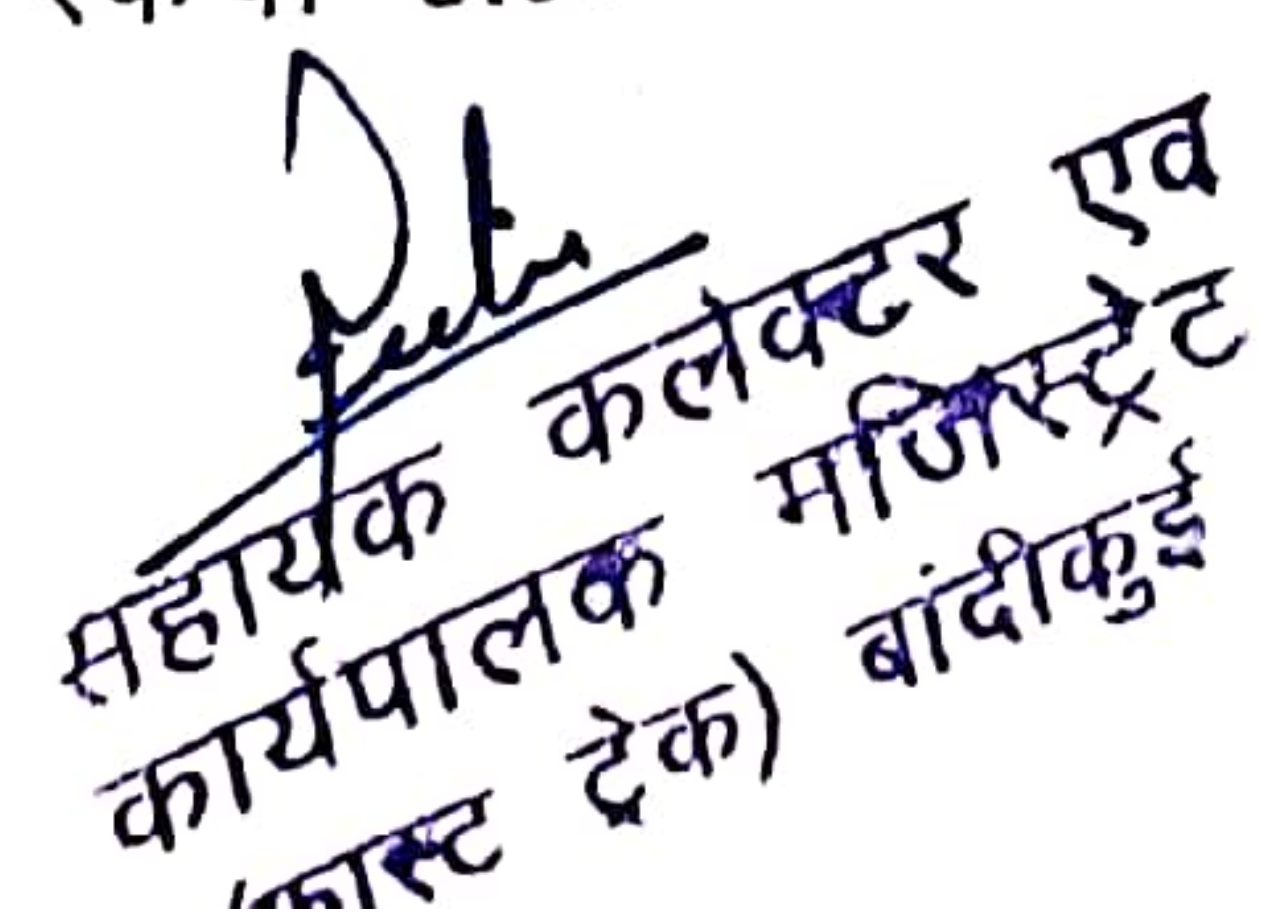 सहायक कलेक्टर एवं
कार्यपालक मजिस्ट्रेट
(फास्ट ट्रेक) बांदीकुई